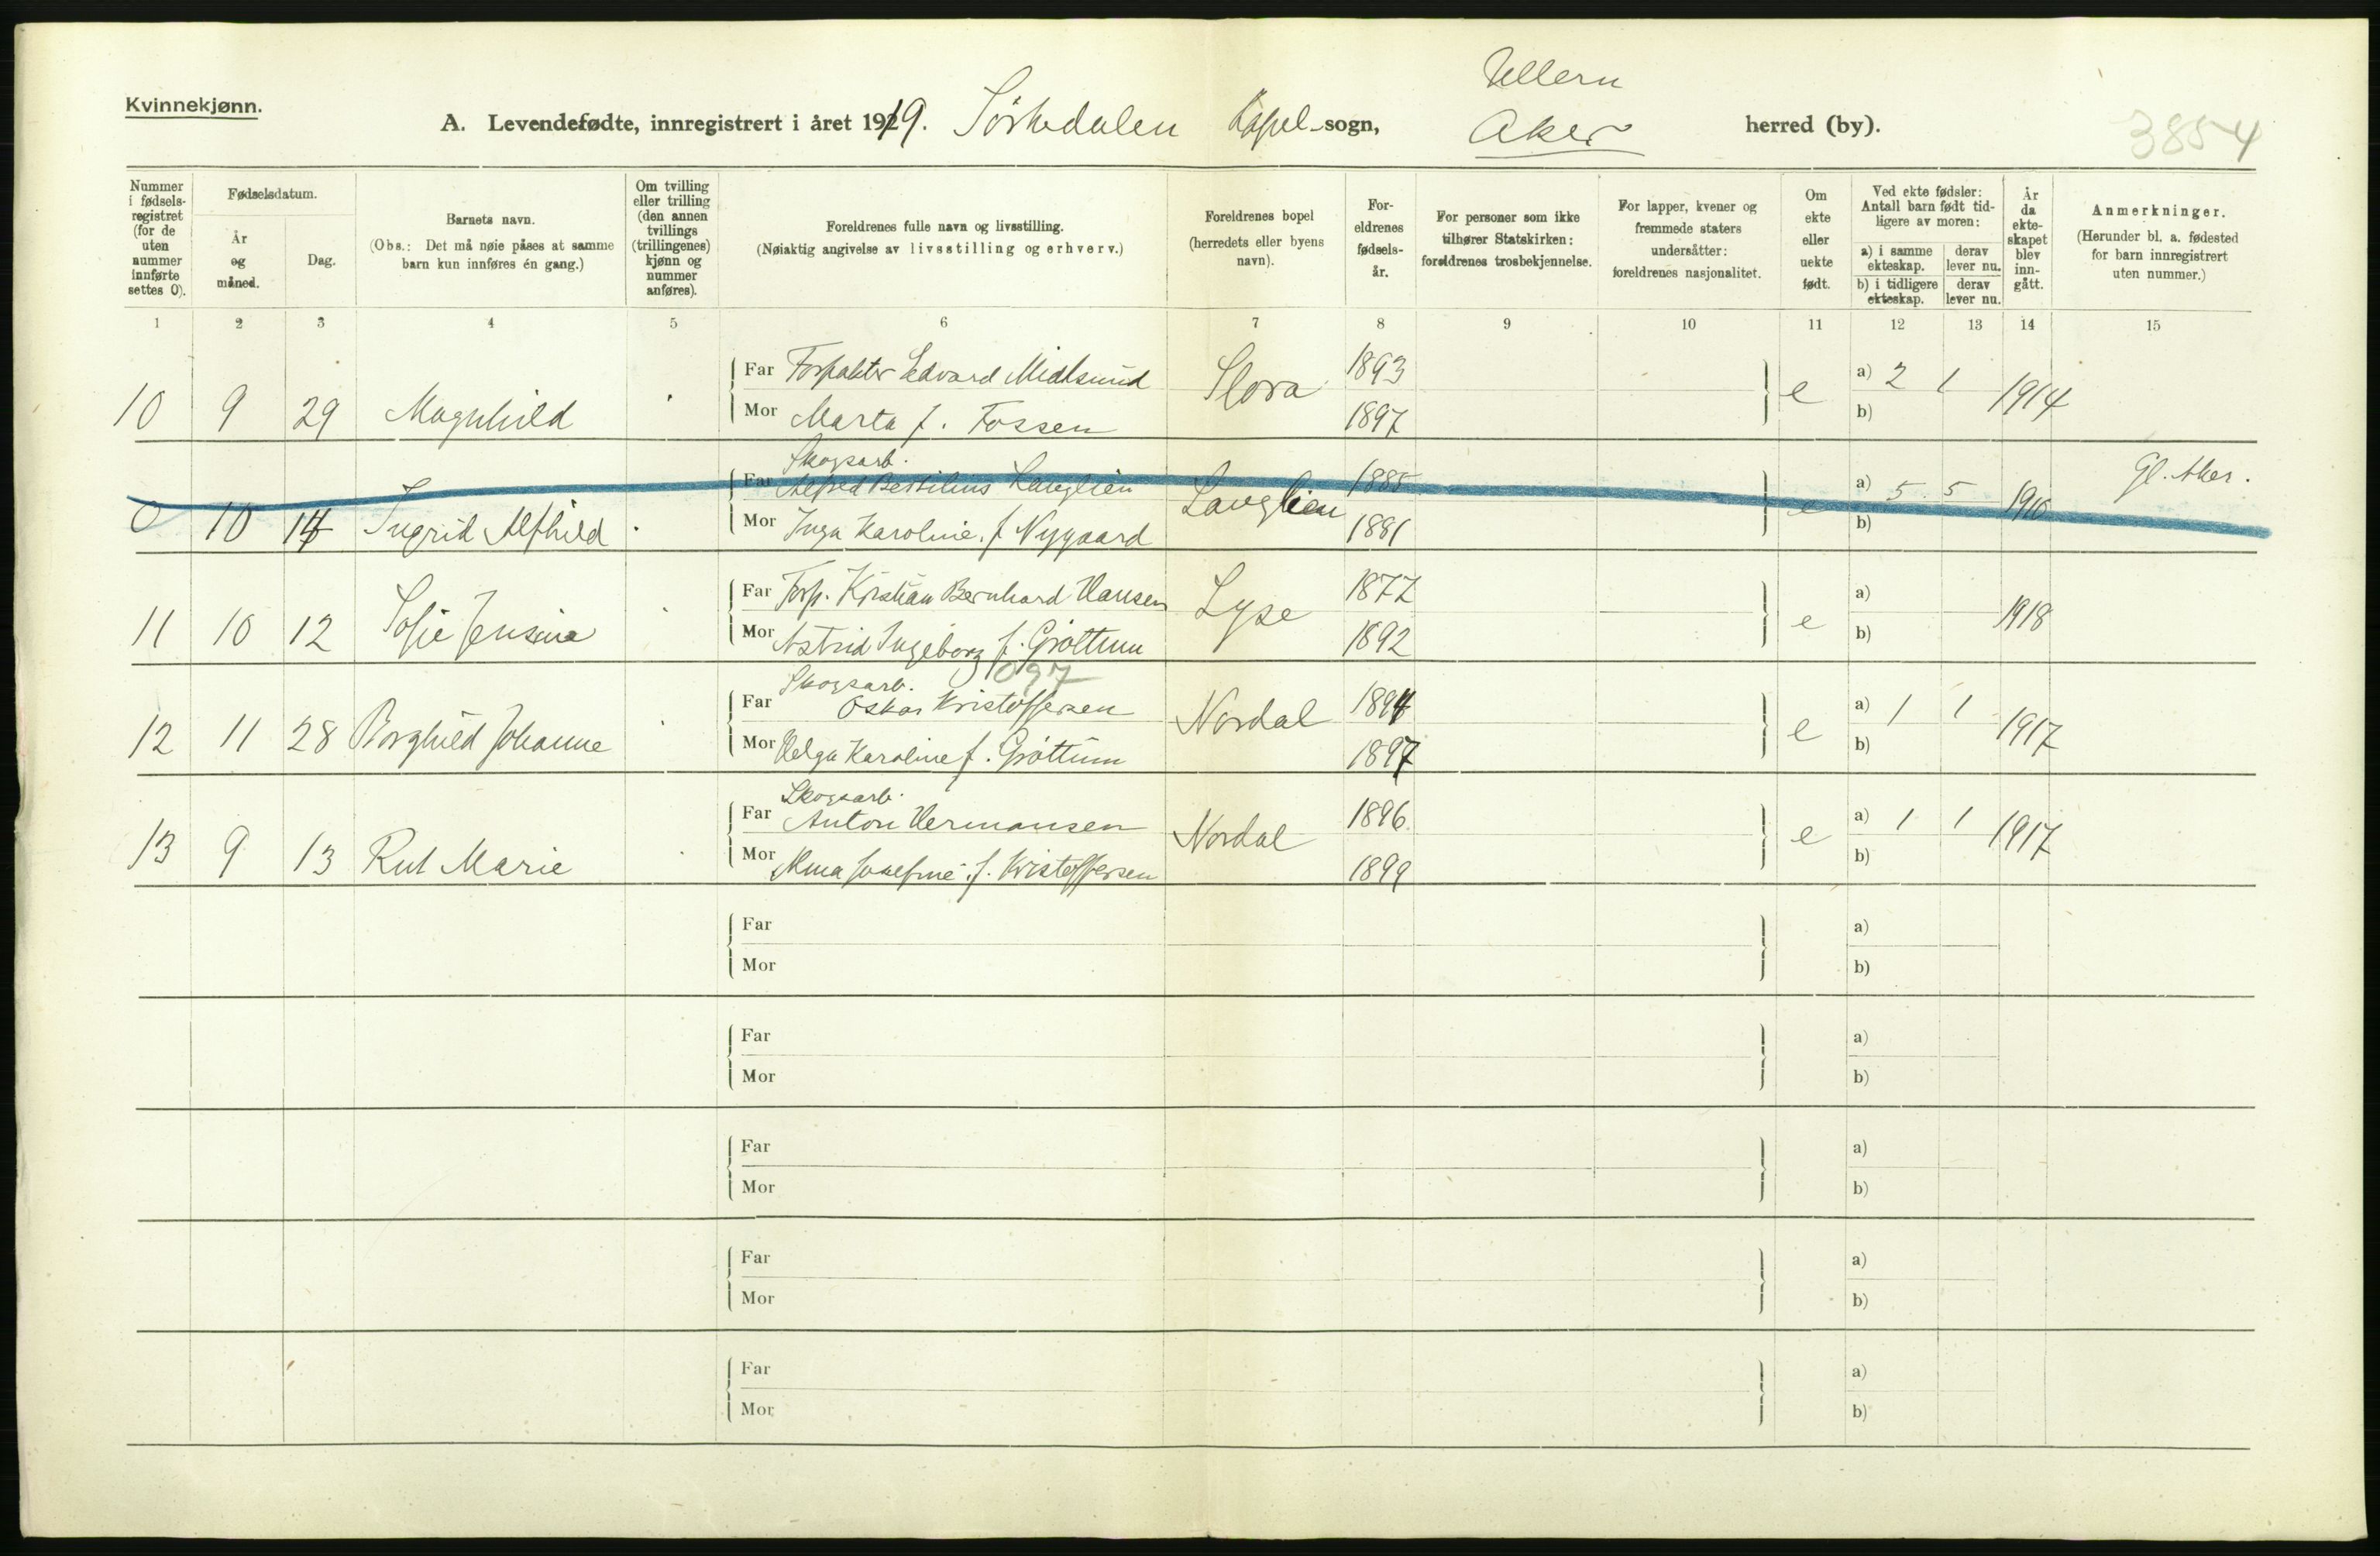 Kvinnekjønn.
Ullern
A. Levendefødte, innregistrert i året 1919. Sørkedalen Kapel-sogn, Aker herred (by).
3854
Nummer i fødsels-registret (for de uten nummer innførte settes 0).
Fødselsdatum.
År og måned.
Dag.
Barnets navn.
(Obs.: Det må nøie påses at samme barn kun innføres én gang.)
Om tvilling eller trilling (den annen tvillings (trillingenes) kjønn og nummer anføres).
Foreldrenes fulle navn og livsstilling.
(Nøiaktig angivelse av livsstilling og erhverv.)
Foreldrenes bopel (herredets eller byens navn).
For-eldrenes fødsels-år.
For personer som ikke tilhører Statskirken: foreldrenes trosbekjennelse.
For lapper, kvener og fremmede staters undersåtter: foreldrenes nasjonalitet.
Om ekte eller uekte født.
Ved ekte fødsler: Antall barn født tid-ligere av moren:
a) i samme ekteskap.
derav lever nu.
b) i tidligere ekteskap.
derav lever nu.
År da ekte-skapet blev inn-gått.
Anmerkninger.
(Herunder bl. a. fødested for barn innregistrert uten nummer.)
1 2 3 4 5 6 7 8 9 10 11 12 13 14 15
Far Forpakter Edvard Midtsund Slora 1893 a) 2 1
10 9 29 Magnhild Mor Marta f. Fossen 1897 e b) 1914
Skogsarb.
Far Alfred Bertilius Langlien Langlien 1885 a) 5 5 Gl. Aker.
0 10 14 Ingrid Alfhild Mor Inga Karoline f. Nygaard 1881 e b) 1910
Far Forp. Kristian Bernhard Hansen Lyse 1877 a)
11 10 12 Sofie Jensine Mor Astrid Ingeborg f. Grøttum 1892 e b) 1918
1097
Skogsarb.
Far Oskar Kristoffersen Nordal 1894 a) 1 1
12 11 28 Borghild Johanne Mor Helga Karoline f. Grøttum 1897 e b) 1917
Skogsarb.
Far Anton Hermansen Nordal 1896 a) 1 1
13 9 13 Rut Marie Mor Alma Josefine f. Kristoffersen 1899 e b) 1917
Far a)
Mor b)
Far a)
Mor b)
Far a)
Mor b)
Far a)
Mor b)
Far a)
Mor b)